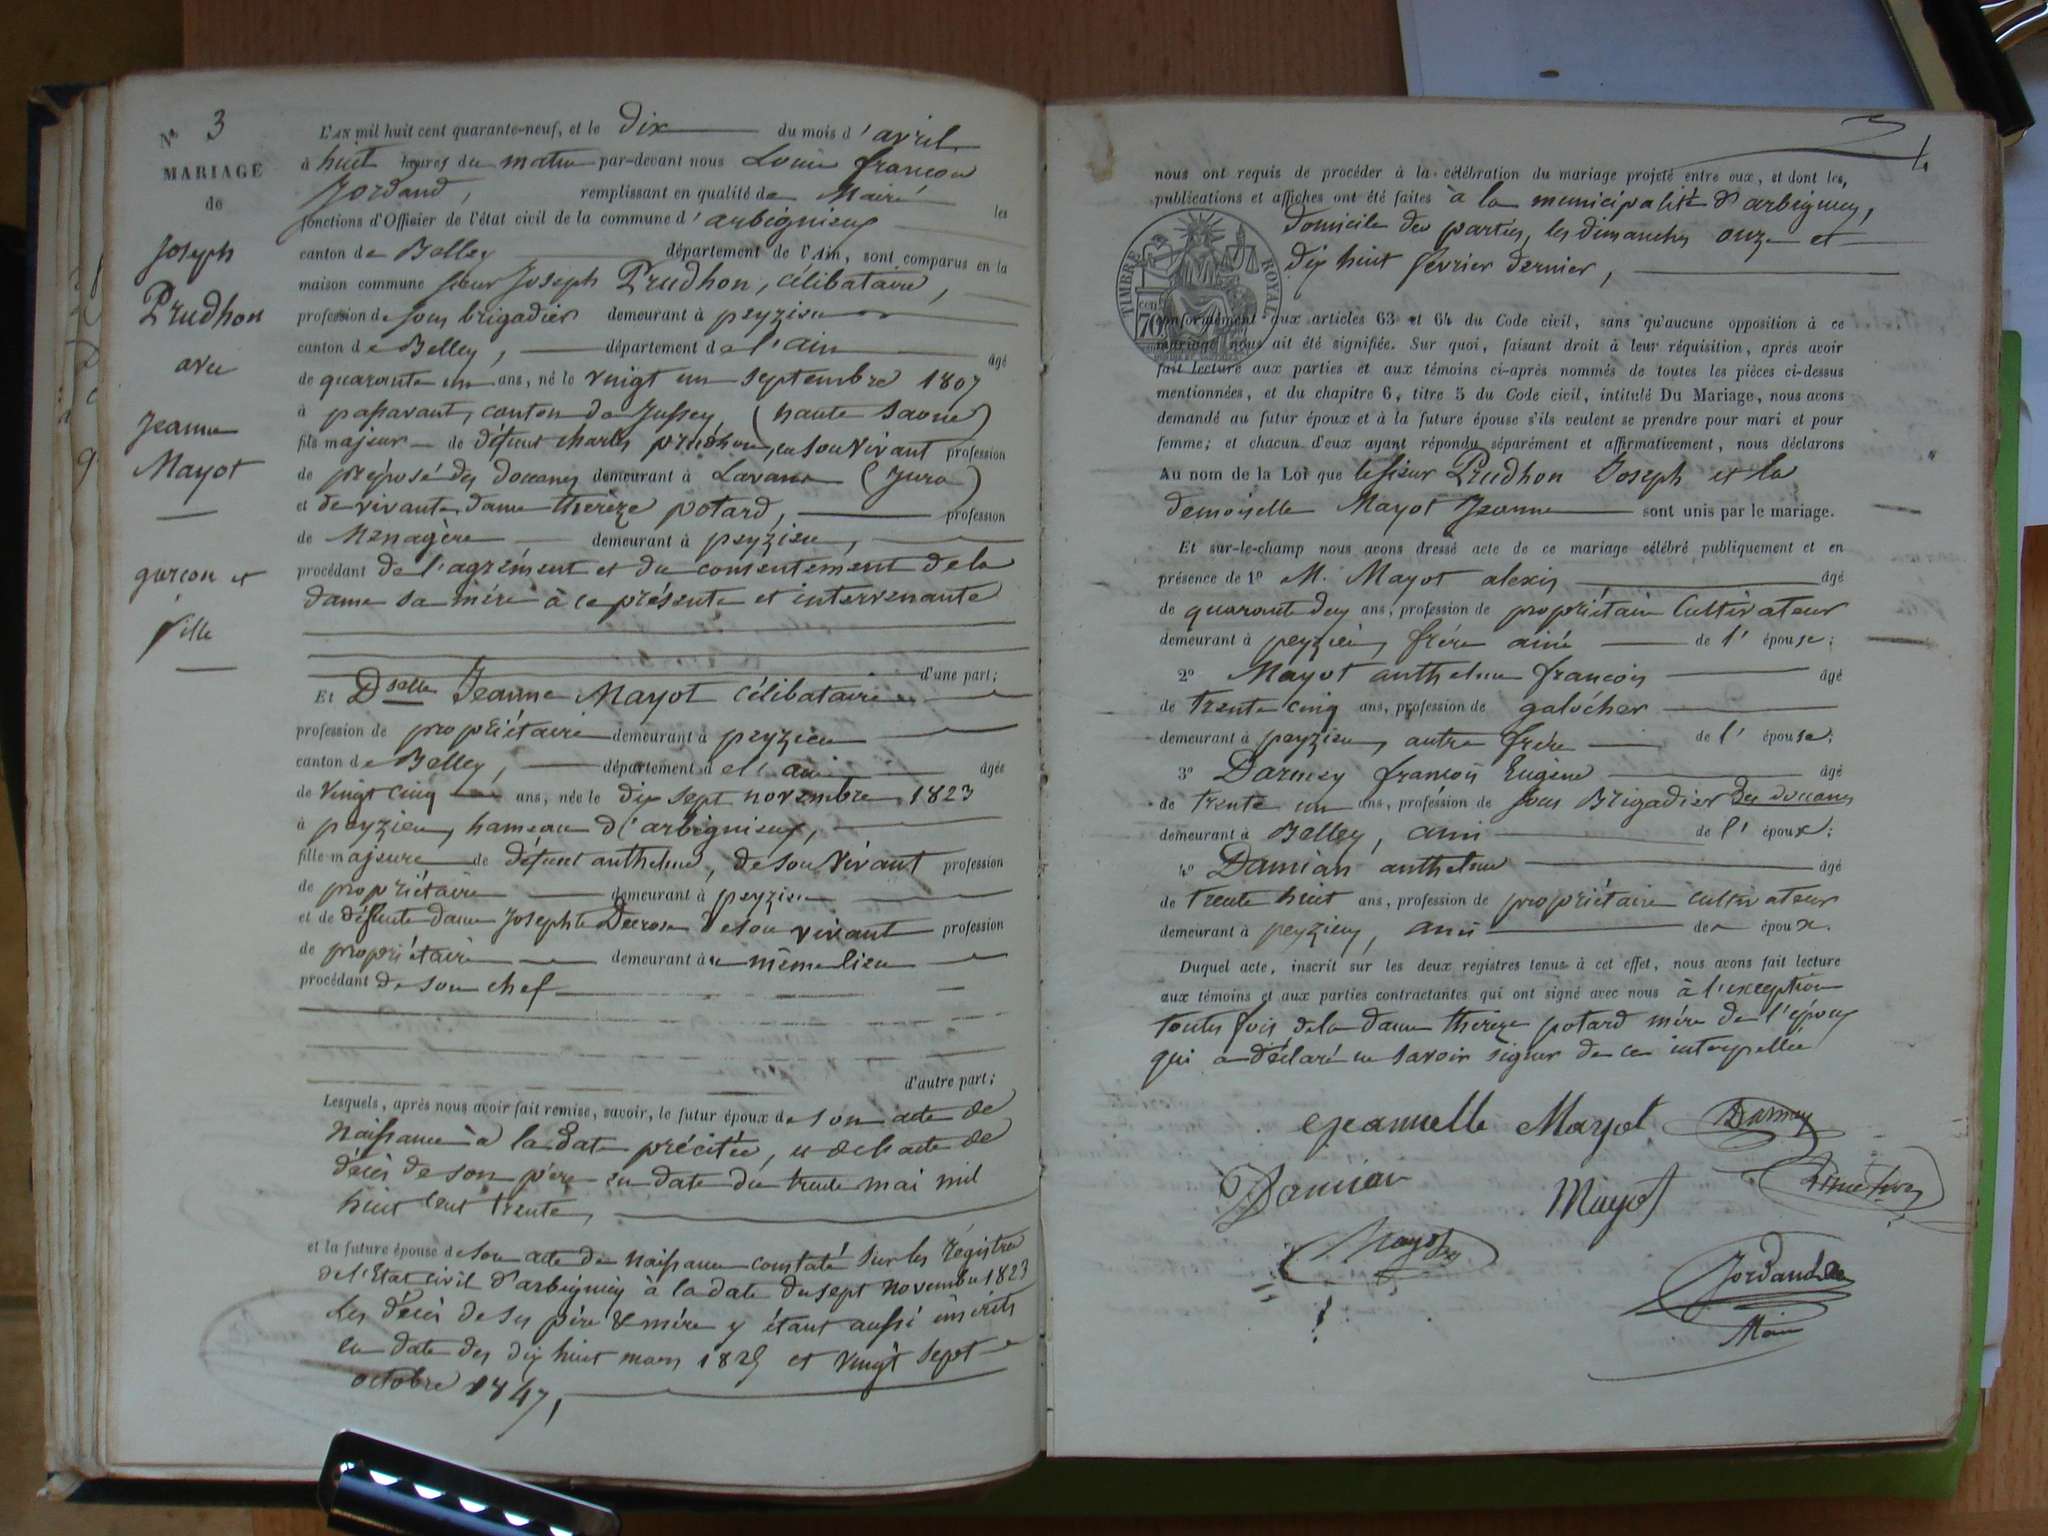 N° 3
MARIAGE
de
Joseph
Prudhon
avec
Jeanne
Mayot
garcon et
fille
L'AN mil huit cent quarante-neuf, et le dix du mois d'avril
à huit heures du matin par-devant nous Louis francois
Jordand, remplissant en qualité de Maire les
fonctions d'Officier de l'état civil de la commune d'arbignieux
canton de Belley département de l'Ain, sont comparus en la
maison commune sieur Joseph Prudhon, célibataire,
profession de sous brigadier demeurant à peyzieu
canton de Belley, département de l'ain âgé
de quarante un ans, né le vingt un septembre 1807
à passavant, canton de Jussey (haute saone)
fils majeur de défunt charles prudhon, en son vivant profession
de préposé des douanes demeurant à Lavans (Jura)
et de vivante dame thérèze potard, profession
de Ménagère demeurant à peyzieu,
procédant de l'agrément et du consentement de la
dame sa mère à ce présente et intervenante
d'une part;
Et Dselle Jeanne Mayot célibataire
profession de propriétaire demeurant à peyzieu
canton de Belley, département de l'ain âgée
de vingt cinq ans, née le dix sept novembre 1823
à peyzieu, hameau d'arbignieux,
fille majeure de défunt anthelme, de son vivant profession
de propriétaire demeurant à peyzieu
et de défunte dame Josephte de son vivant profession
de propriétaire demeurant à u même lieu
procédant de son chef
d'autre part;
Lesquels, après nous avoir fait remise, savoir, le futur époux de son acte de
naissance à la date précitée, et de l'acte de
décès de son père en date du trente mai mil
huit cent trente,
et la future épouse de son acte de naissance constaté sur les régistres
de l'Etat civil d'arbignieu à la date du sept novembre 1823
Les décès de ses père & mère y étant aussi inscrits
en date des dix huit mars 1825 et vingt sept
octobre 1847,
4
nous ont requis de procéder à la célébration du mariage projeté entre eux, et dont les
publications et affiches ont été faites à la municipalité d'arbignieu,
domicile des parties, les dimanches onze et
dix huit février dernier,
TIMBRE ROYAL
70 cent
conformément aux articles 63 et 64 du Code civil, sans qu'aucune opposition à ce
mariage nous ait été signifiée. Sur quoi, faisant droit à leur réquisition, après avoir
fait lecture aux parties et aux témoins ci-après nommés de toutes les pièces ci-dessus
mentionnées, et du chapitre 6, titre 5 du Code civil, intitulé Du Mariage, nous avons
demandé au futur époux et à la future épouse s'ils veulent se prendre pour mari et pour
femme; et chacun d'eux ayant répondu séparément et affirmativement, nous déclarons
Au nom de la Loi que le sieur Prudhon Joseph et la
demoiselle Mayot Jeanne sont unis par le mariage.
Et sur-le-champ nous avons dressé acte de ce mariage célébré publiquement et en
présence de 1° M. Mayot alexis âgé
de quarant deux ans, profession de propriétaire Cultivateur
demeurant à peyzieu, frère ainé de l' épouse;
2° Mayot anthelme francois âgé
de trente cinq ans, profession de galócher
demeurant à peyzieu, autre frère de l' épouse;
3° Darmey françois Eugène âgé
de trente un ans, profession de sous Brigadier des douanes
demeurant à Belley, ami de l' époux;
4° Damian anthelme âgé
de trente huit ans, profession de propriétaire cultivateur
demeurant à peyzieu, ami de époux.
Duquel acte, inscrit sur les deux registres tenus à cet effet, nous avons fait lecture
aux témoins et aux parties contractantes qui ont signé avec nous à l'exception
toutes fois de la dame thérèze potard mère de l'époux
qui a déclaré ne savoir signer de ce interpellée
Jeannette Mayot Darmey
Damian Mayot
Mayot
Jordand
Maire